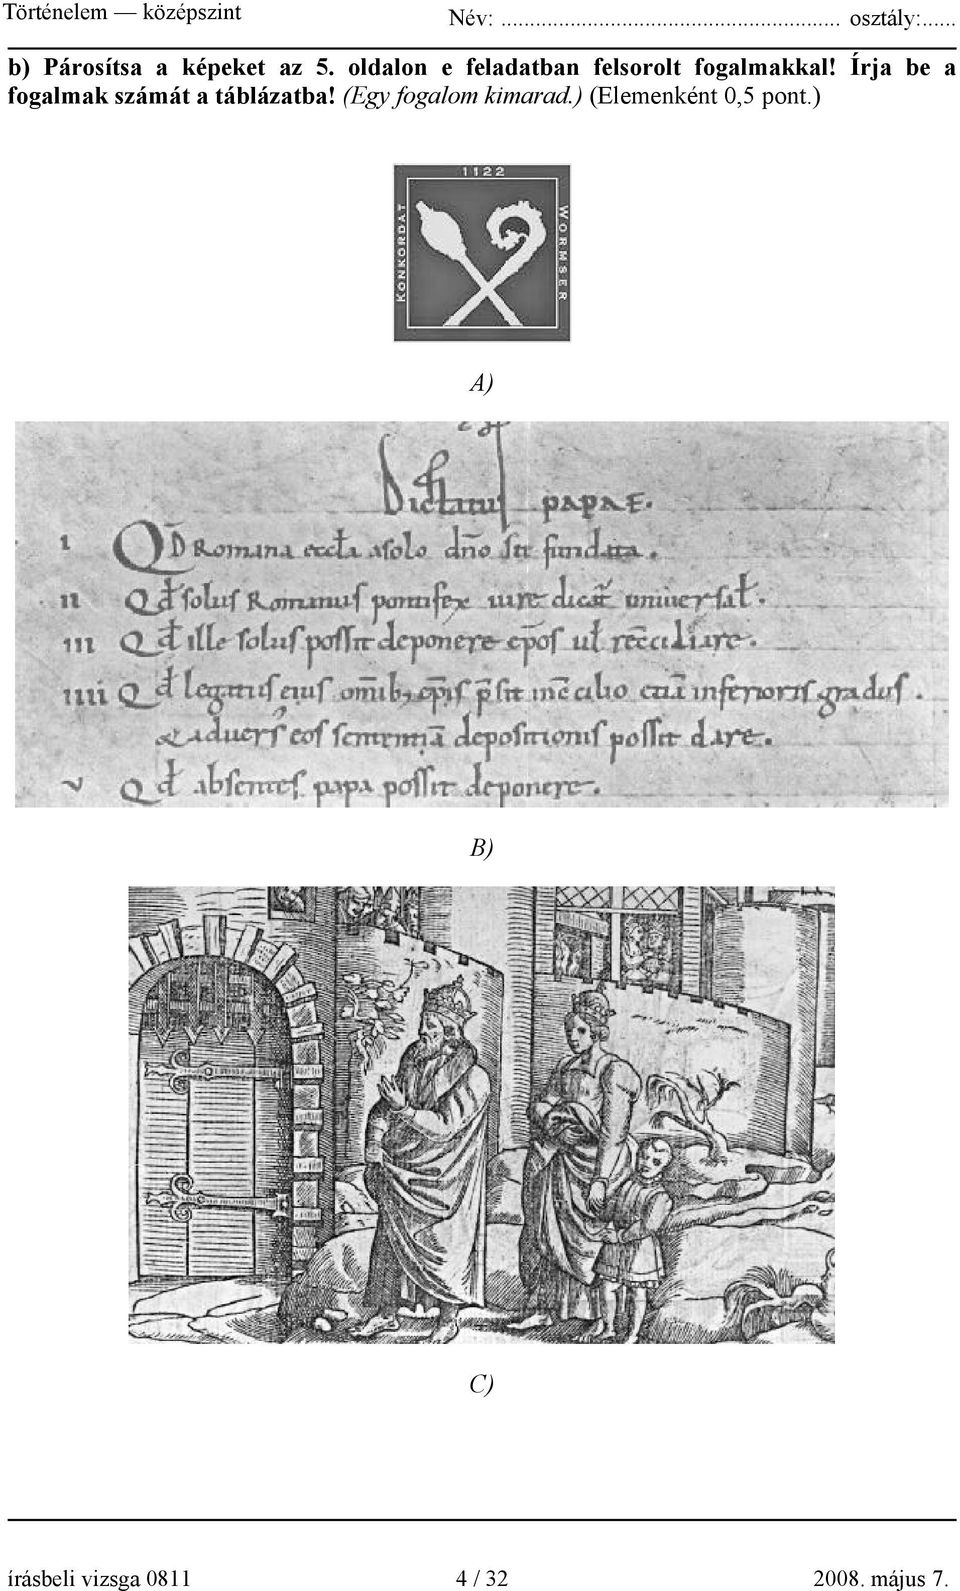 Történelem — középszint
Név: ................................................... osztály:......
b) Párosítsa a képeket az 5. oldalon e feladatban felsorolt fogalmakkal! Írja be a
fogalmak számát a táblázatba! (Egy fogalom kimarad.) (Elemenként 0,5 pont.)
1122
KONKORDAT
WORMSER
A)
Dictatus papae.
I Qd Romana eccla a solo dno sit fundata.
II Qd solus Romanus pontifex iure dicat universal.
III Qd ille solus possit deponere epos ul recciliare.
IIII Qd legatus eius omib; epis psit in cilio etia inferioris gradus.
& adversus eos sententia depositionis possit dare.
V Qd absentes papa possit deponere.
B)
C)
írásbeli vizsga 0811
4 / 32
2008. május 7.